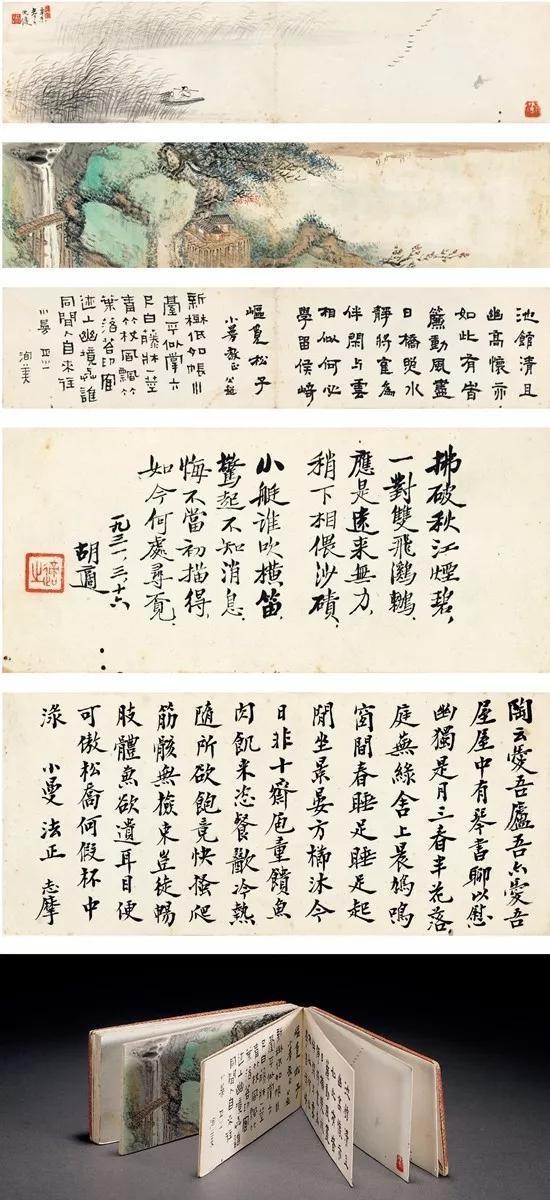 池館清且
幽高懷亦
如此有旹
簾動風盡
日橋照水
靜將鶴為
伴閑与雲
相似何必
學留侯崎
嶇覓松子
小曼教正
新樹低如帳小
臺平似掌六
尺白藤牀一莖
青竹杖風飄竹
葉落苔印鶴
迹上幽境與誰
同閒人自來往
小曼
洵美
拂破秋江煙碧,
一對雙飛鸂鶒,
應是遠來無力,
稍下相偎沙磧.
小艇誰吹橫笛,
驚起不知消息,
悔不當初描得,
如今何處尋覓.
一九三一,三,十六
胡適
適之
陶云愛吾廬吾亦愛吾
屋屋中有琴書聊以慰
幽獨是月三春半花落
庭蕪綠舍上晨鳩鳴
窗間春睡足睡足起
閒坐景晏方櫛沐今
日非十齋庖童饋魚
肉飢來恣餐歠冷熱
隨所欲飽竟快搔爬
筋骸無檢束豈徒暢
肢體兼欲遺耳目便
可傲松喬何假杯中
淥 小曼法正 志摩